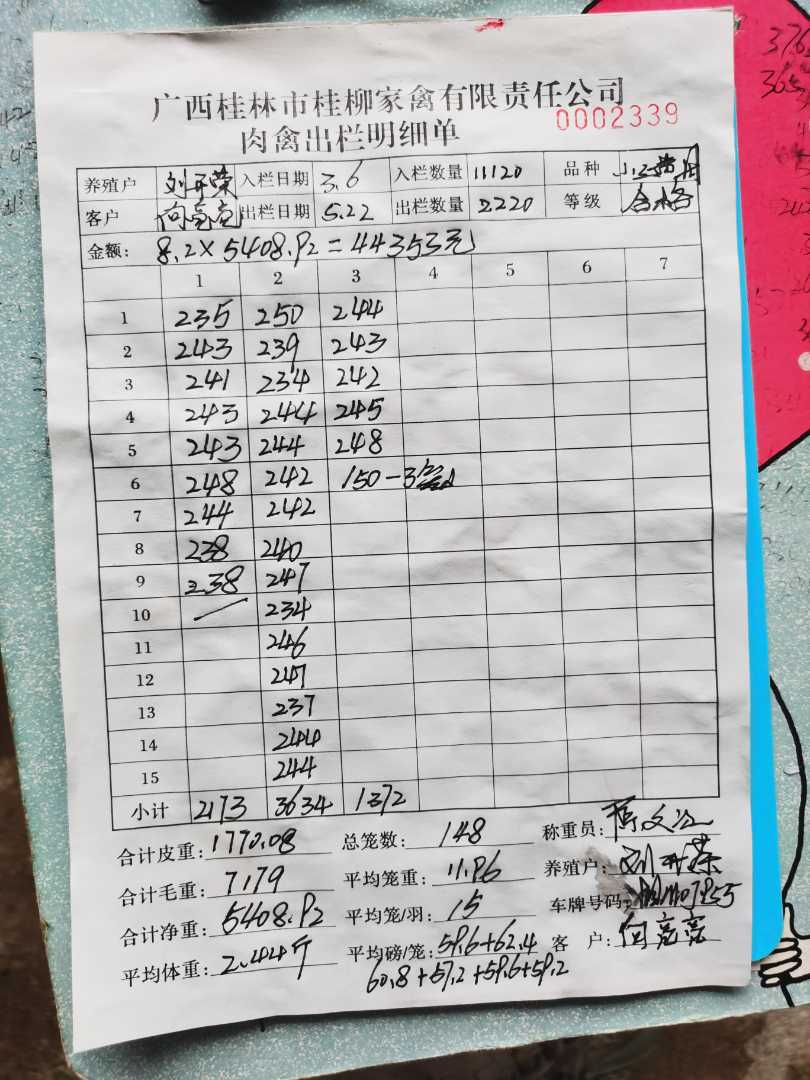 广西桂林市桂柳家禽有限责任公司
肉禽出栏明细单 0002339
养殖户 刘开荣 入栏日期 3.6 入栏数量 11120 品种
客户 向亮亮 出栏日期 5.22 出栏数量 2220 等级 合格
金额: 8.2×5408.92=44353元
1 2 3 4 5 6 7
1 235 250 244
2 243 239 243
3 241 234 242
4 243 244 245
5 243 244 248
6 248 242 150-3
7 244 242
8 238 240
9 238 247
10 234
11 246
12 247
13 237
14 244
15 244
小计 2173 3634 1372
合计皮重: 1770.08 总笼数: 148 称重员:
合计毛重: 7179 平均笼重: 11.96 养殖户: 刘开荣
合计净重: 5408.92 平均笼/羽: 15 车牌号码:
平均体重: 2.44斤 平均磅/笼: 59.6+62.4 客 户: 向亮亮
60.8+57.2+59.6+59.2